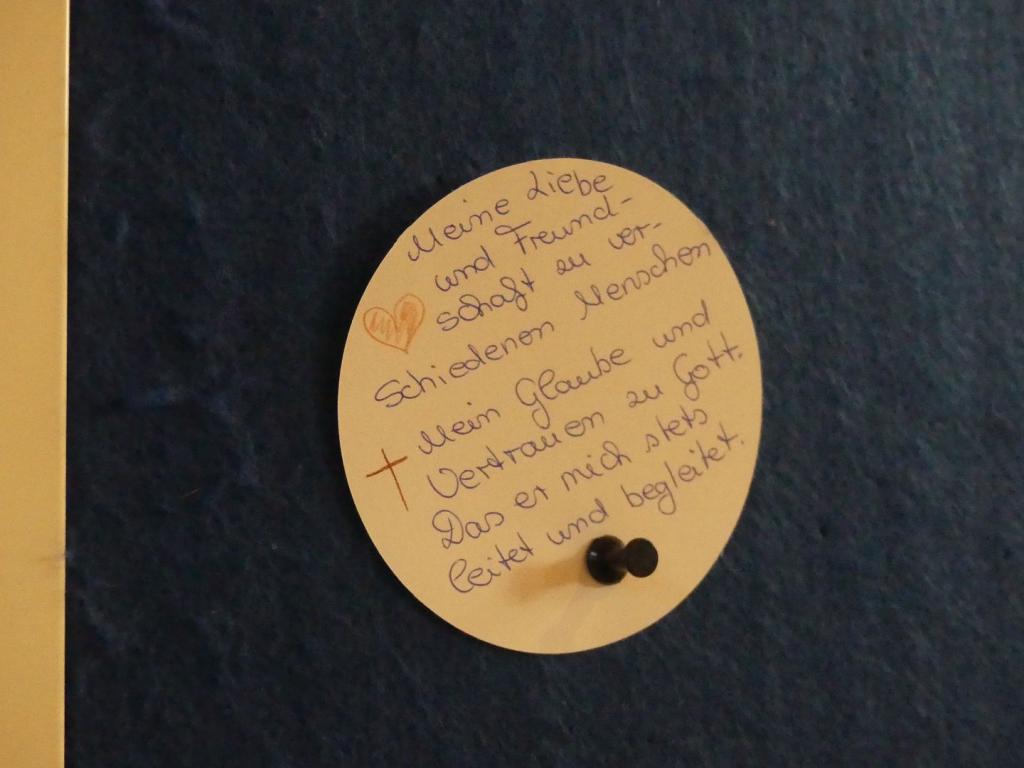 Meine Liebe
und Freund-
schaft zu ver-
schiedenen Menschen
Mein Glaube und
Vertrauen zu Gott.
Das er mich stets
leitet und begleitet.